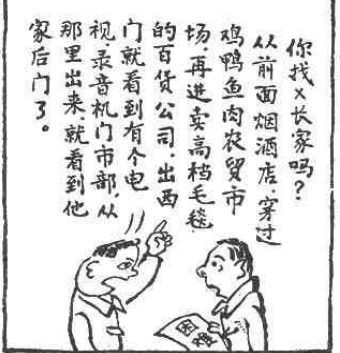 你找×长家吗？
从前面烟酒店，穿过
鸡鸭鱼肉农贸市
场，再进卖高档毛毯
的百货公司，出西
门就看到有个电
视、录音机门市部，从
那里出来，就看到他
家后门了。
困难